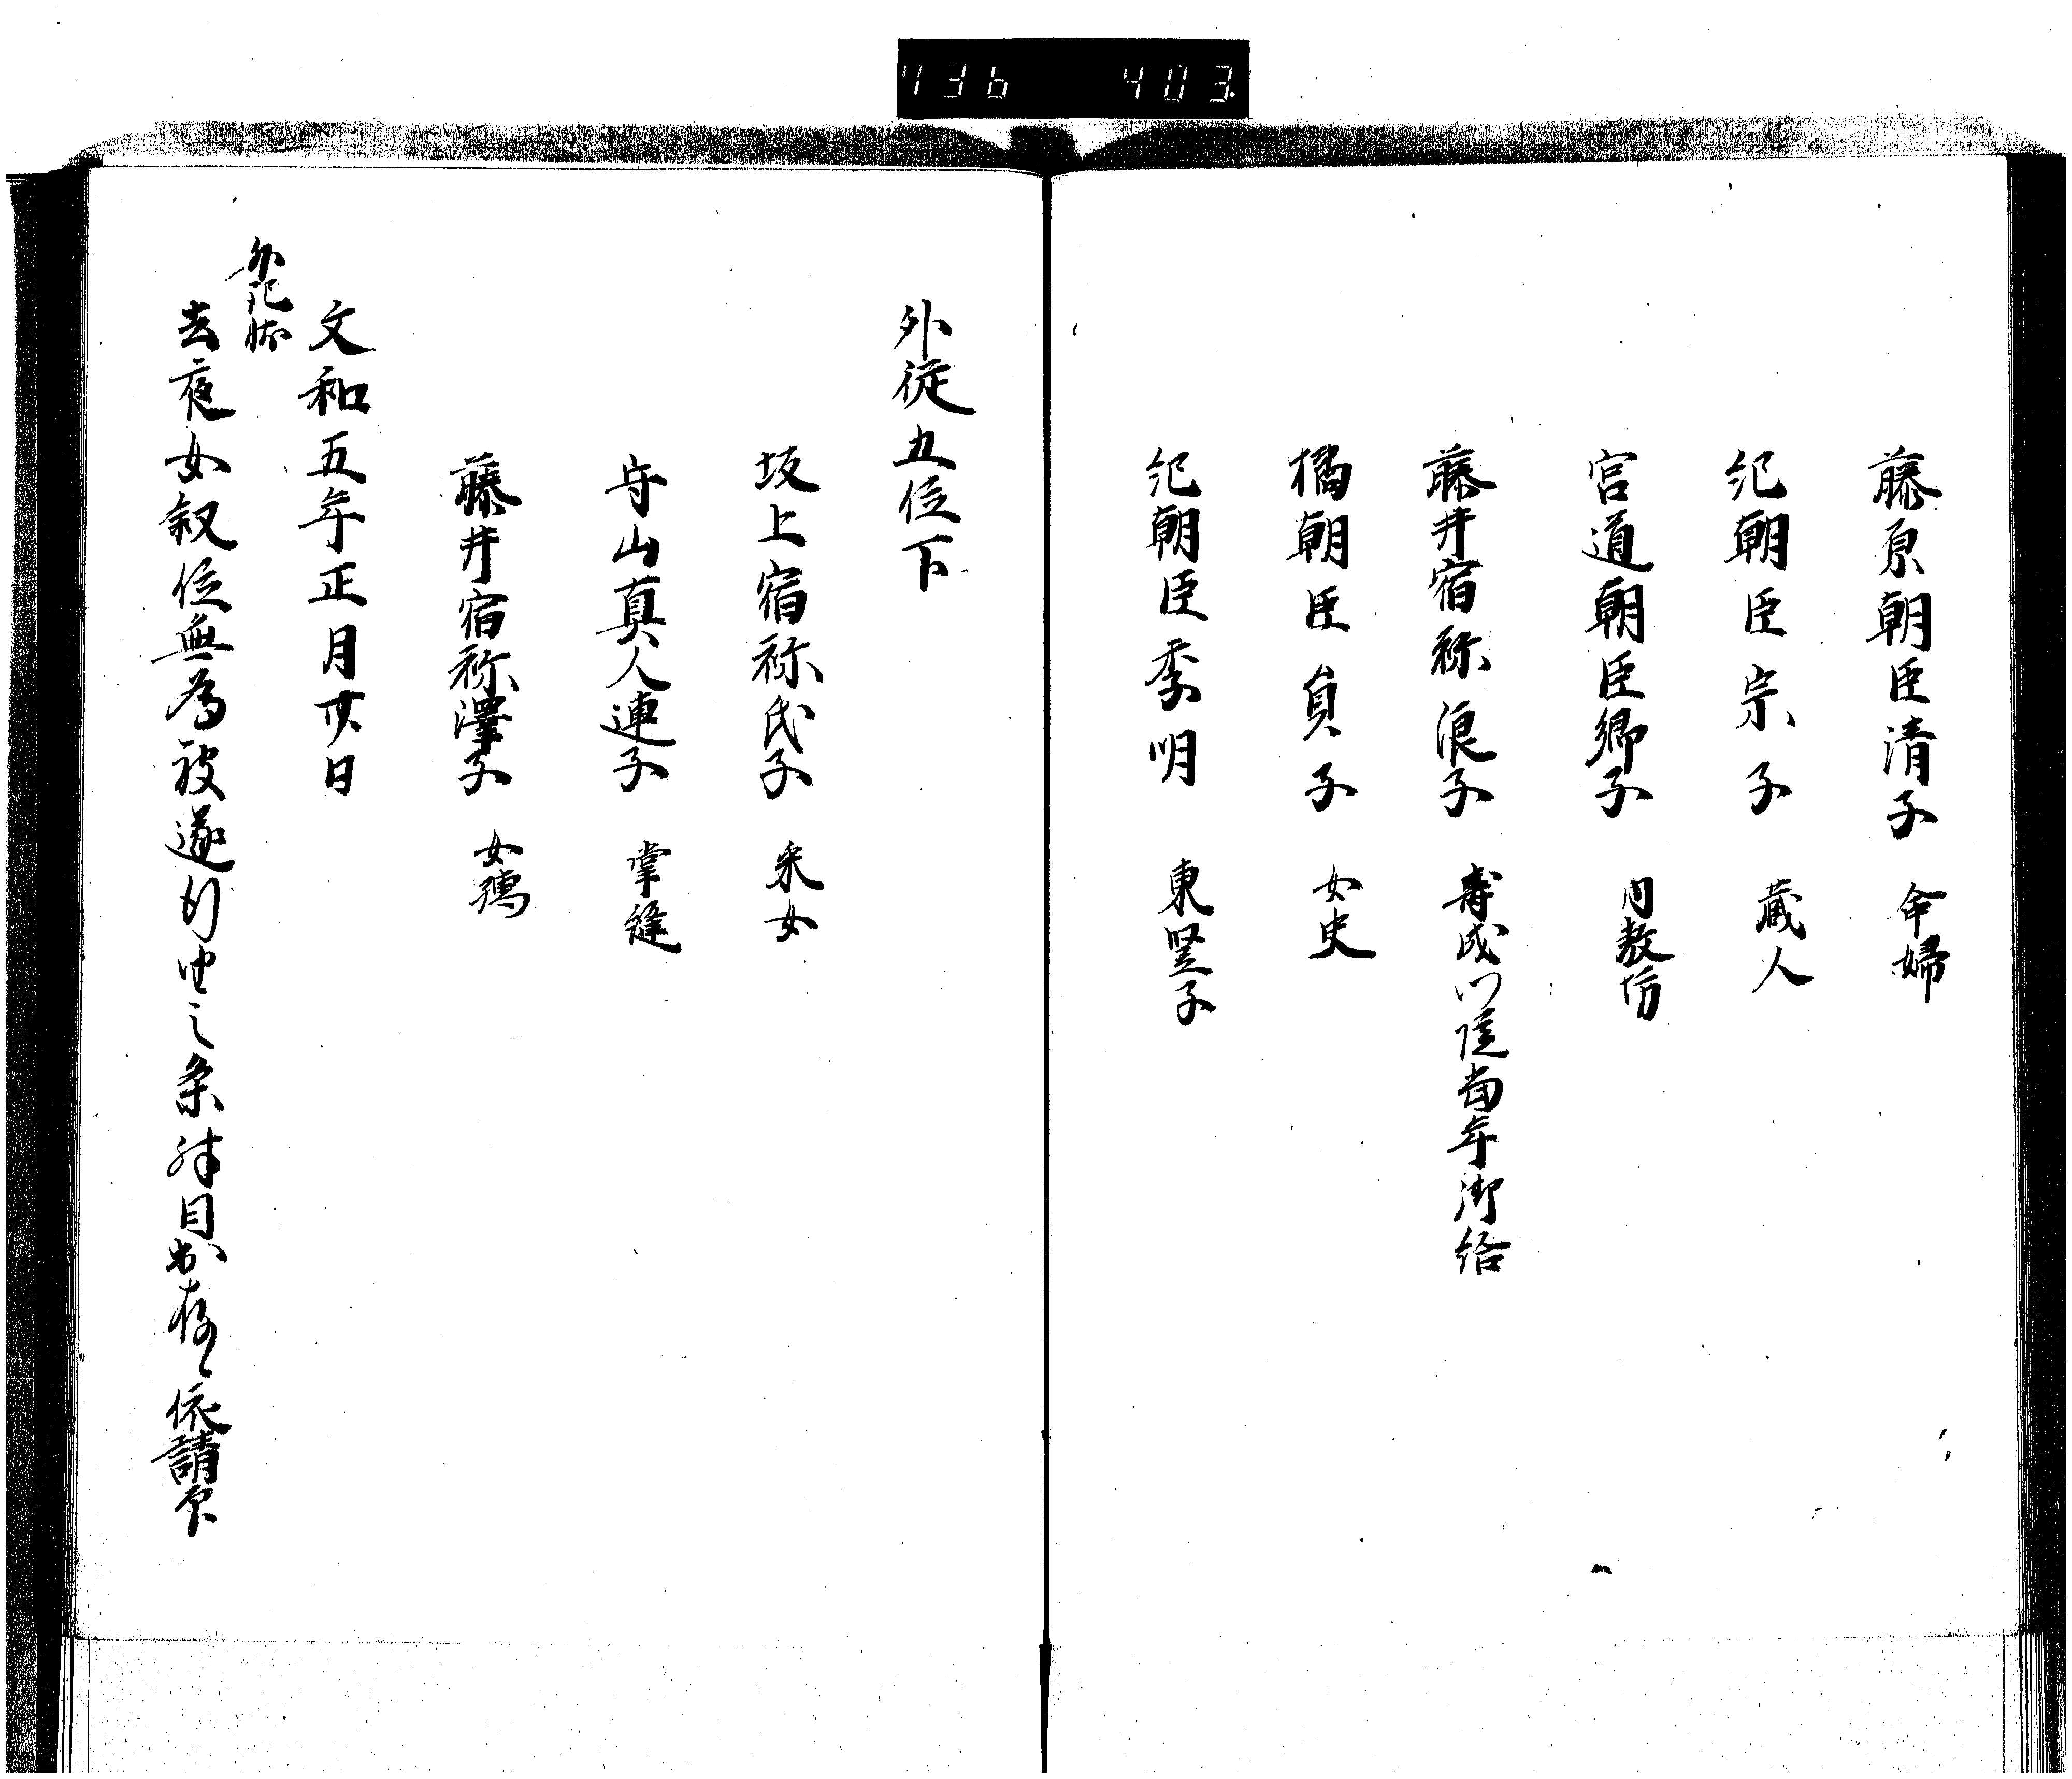 736 403
藤原朝臣清子 命婦
紀朝臣宗子 蔵人
宮道朝臣郷子 内教坊
藤井宿祢浪子 寿成門院当年御給
橘朝臣貞子 女史
紀朝臣季明 東竪子
外従五位下
坂上宿祢氏子 采女
守山真人連子 掌縫
藤井宿祢澤子 女孺
文和五年正月廿八日
外記状
去夜女叙位無為被遂行